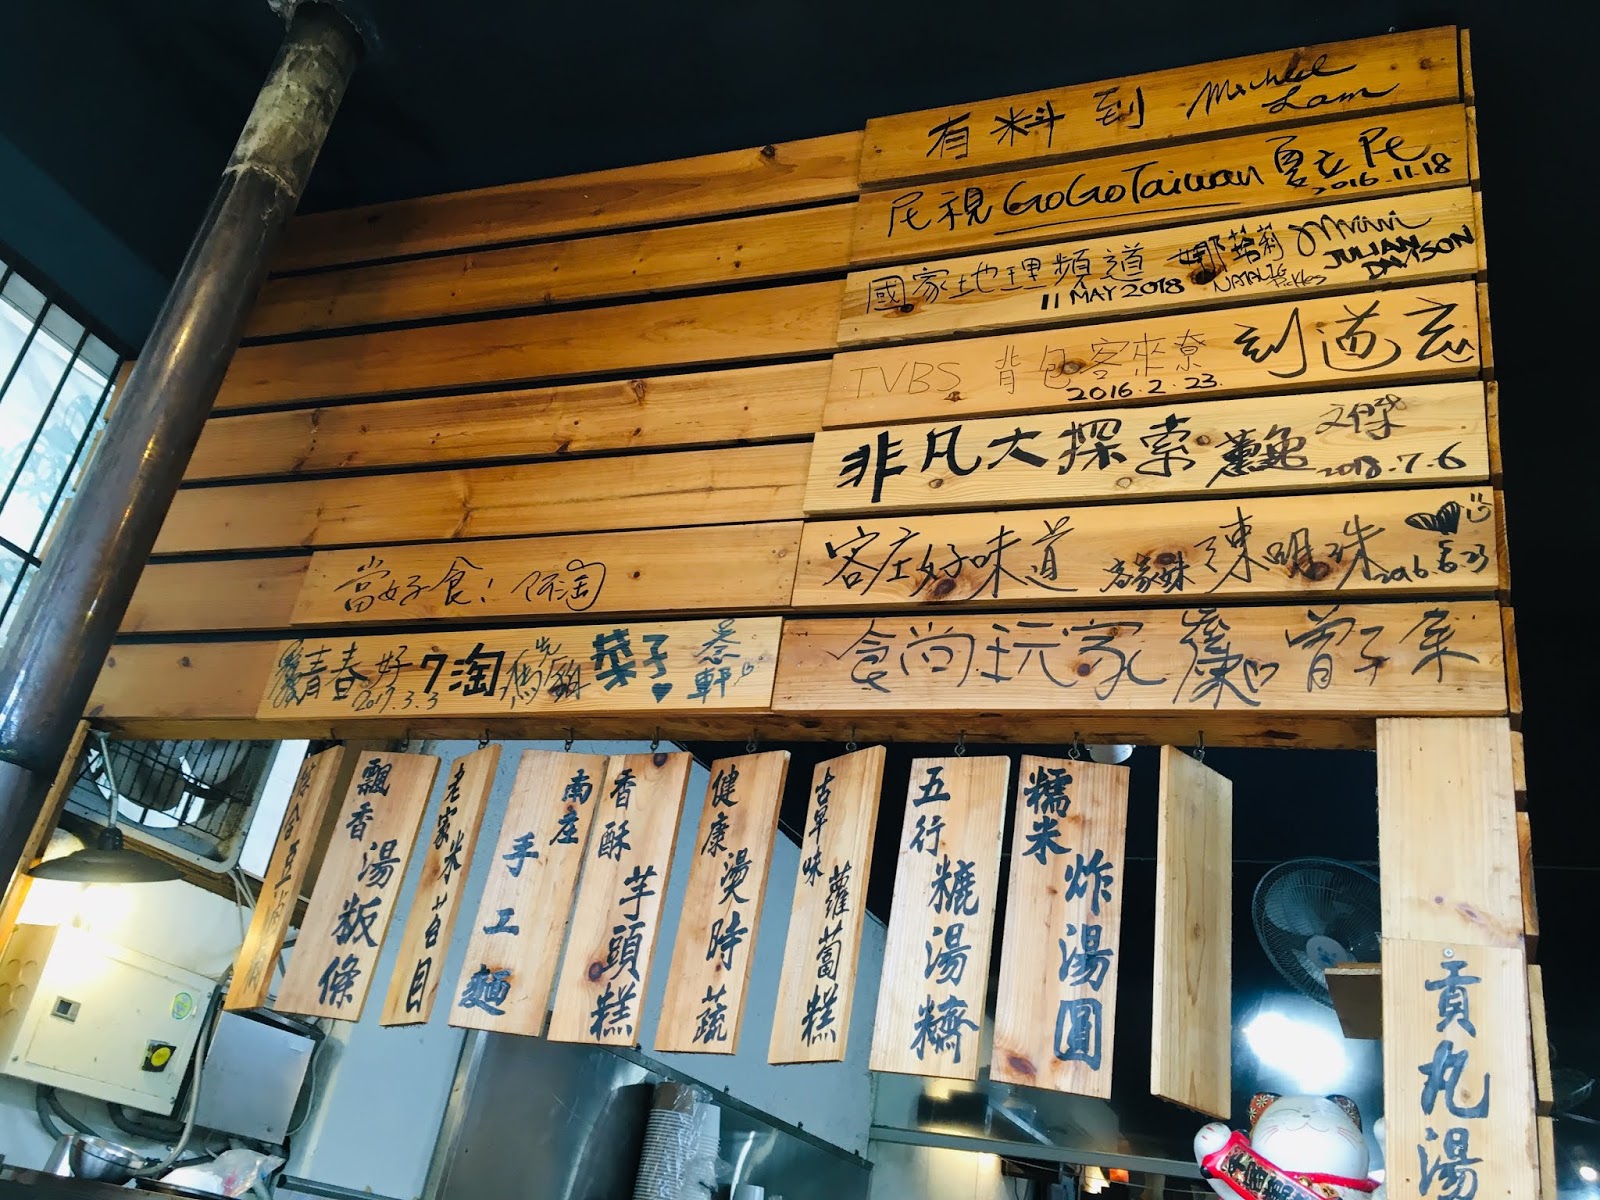 有料到 Michael Lam
尼視 GoGoTaiwan 夏立民 2016.11.18
國家地理頻道 娜塔莉 NATALIE Pickles JULIAN DAVISON
11 MAY 2018
TVBS 背包客來寮 2016.2.23.
非凡大探索 文傑 2018.7.6
客庄好味道 客家妹 陳明珠 2016.6.23
當好食! 阿淘
愛青春好7淘 菜子 2017.3.3
食尚玩家 曾子余
飄香湯粄條
老家米苔目
南庄手工麵
香酥芋頭糕
健康燙時蔬
古早味蘿蔔糕
五行糙湯糍
糯米炸湯圓
貢丸湯